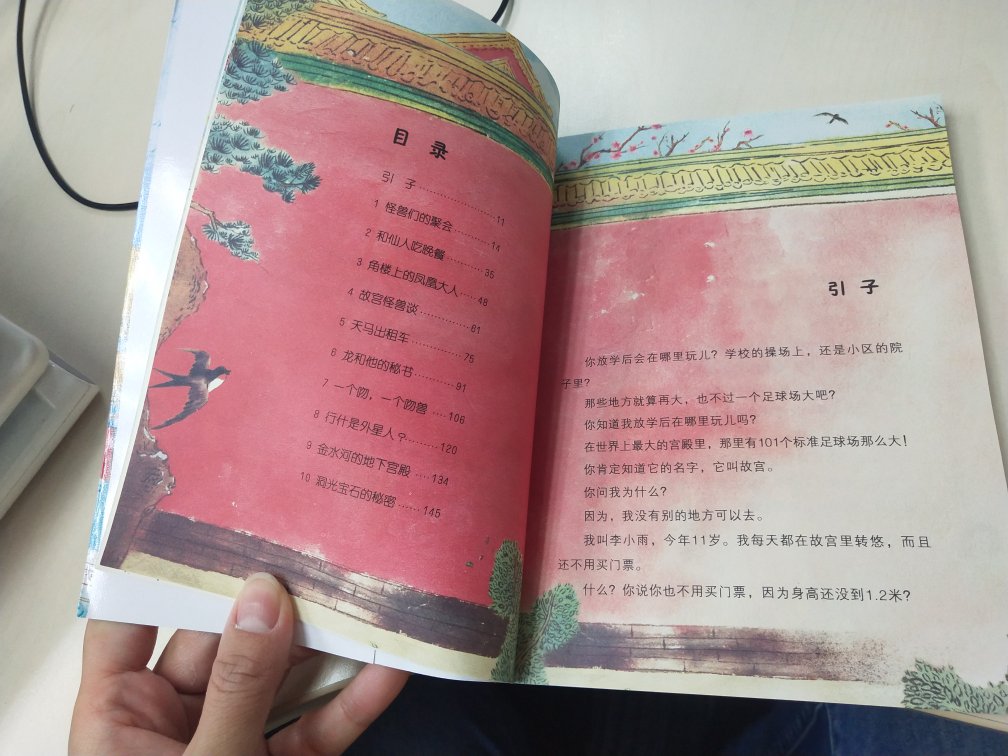 目 录
引 子……………………11
1 怪兽们的聚会…………14
2 和仙人吃晚餐…………35
3 角楼上的凤凰大人……48
4 故宫怪兽谈……………61
5 天马出租车……………75
6 龙和他的秘书…………91
7 一个吻，一个吻兽……106
8 行什是外星人？………120
9 金水河的地下宫殿……134
10 洞光宝石的秘密………145
引 子
你放学后会在哪里玩儿？学校的操场上，还是小区的院
子里？
那些地方就算再大，也不过一个足球场大吧？
你知道我放学后在哪里玩儿吗？
在世界上最大的宫殿里，那里有101个标准足球场那么大！
你肯定知道它的名字，它叫故宫。
你问我为什么？
因为，我没有别的地方可以去。
我叫李小雨，今年11岁。我每天都在故宫里转悠，而且
还不用买门票。
什么？你说你也不用买门票，因为身高还没到1.2米？